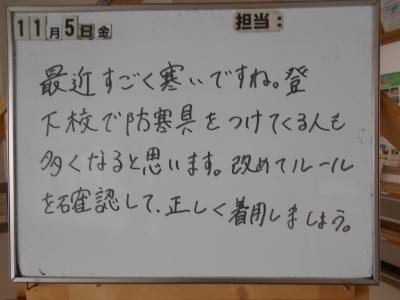 11月5日金 担当:
最近すごく寒いですね。登
下校で防寒具をつけてくる人も
多くなると思います。改めてルール
を確認して、正しく着用しましょう。